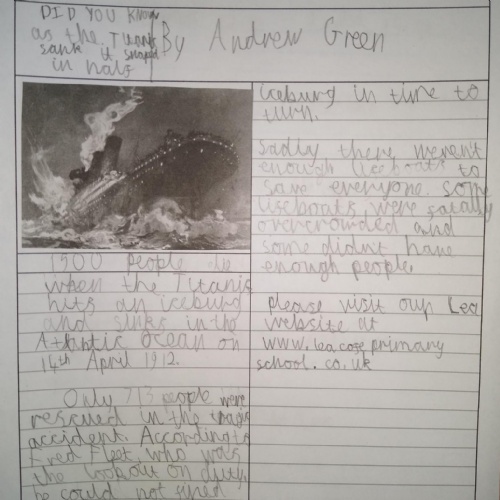 DID YOU KNOW
as the Titanic
sank it snaped
in half
By Andrew Green
1500 people die
when the Titanic
hits an iceburg
and sinks in the
Atlantic Ocean on
14th April 1912.
Only 713 people were
rescued in the tragic
accident. According to
Fred Fleet, who was
the lookout on duty
he could not
iceburg in time to
turn.
Sadly there weren't
enough liceboats to
save everyone. some
liceboats were
overcrowded and
some didn't have
enough people.
please visit our Lea
website at
www.leacoseprimary
school.co.uk